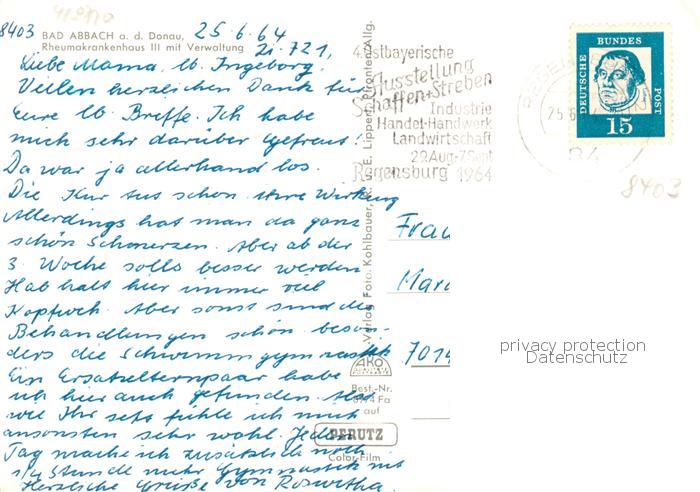 8403
BAD ABBACH a. d. Donau,
25.6.64
Rheumakrankenhaus III mit Verwaltung
Zi. 721,
Liebe Mama, lb. Ingeborg!
Vielen herzlichen Dank für
Eure lb. Breffe. Ich habe
mich sehr darüber gefreut!
Da war ja allerhand los.
Die Kur tut schon ihre Wirkung
Allerdings hat man da ganz
schön Schmerzen. Aber ab der
3. Woche solls besser werden
Hab halt hier immer viel
Kopfweh. Aber sonst sind die
Behandlungen schön beson-
ders die Schwimmgymnastik
Ein Ersatzelternpaar habe
ich hier auch gefunden. Also
wie Ihr seht fühle ich mich
ansonsten sehr wohl. Jeden
Tag mache ich zusätzlich noch
1/4 Stunde mehr Gymnastik mit
Herzliche Grüße von Roswitha.
Verlag Foto: Kohlbauer, E. Lippert, Pfronten/Allg.
AKO
Best.-Nr.
auf
PERUTZ
Color-Film
4. Ostbayerische
Ausstellung
Schaffen+Streben
Industrie
Handel-Handwerk
Landwirtschaft
29.Aug-7.Sept
Regensburg 1964
DEUTSCHE BUNDES POST
15
8403
Frau
privacy protection
Datenschutz